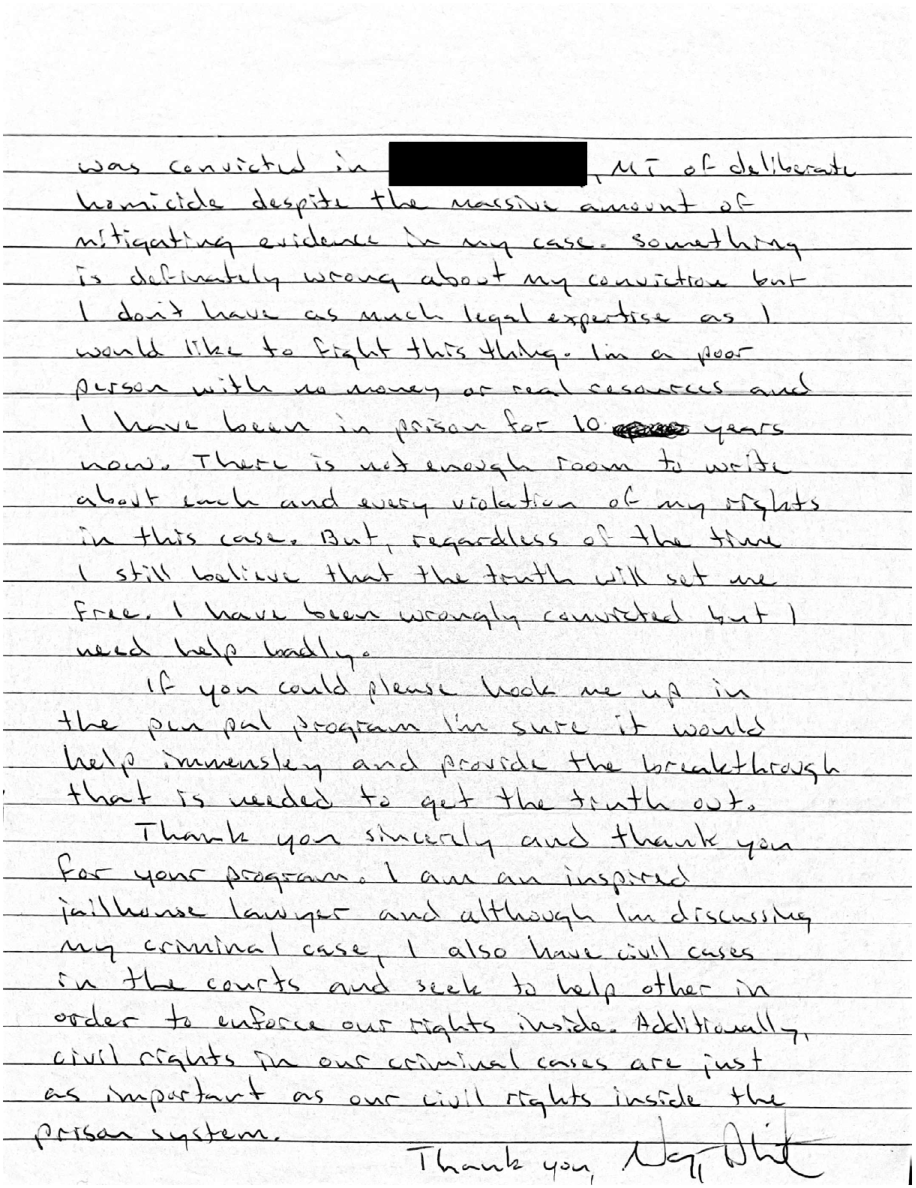 was convicted in , MT of deliberate
homicide despite the massive amount of
mitigating evidence in my case. Something
is definately wrong about my conviction but
I don't have as much legal expertise as I
would like to fight this thing. Im a poor
person with no money or real resources and
I have been in prison for 10 years
now. There is not enough room to write
about each and every violation of my rights
in this case. But, regardless of the time
I still believe that the truth will set me
free. I have been wrongly convicted but I
need help badly.
If you could please hook me up in
the pen pal program I'm sure it would
help immensley and provide the breakthrough
that is needed to get the truth out.
Thank you sincerly and thank you
for your program. I am an inspired
jailhouse lawyer and although Im discussing
my criminal case, I also have civil cases
in the courts and seek to help other in
order to enforce our rights inside. Additionally,
civil rights in our criminal cases are just
as important as our civil rights inside the
prison system.
Thank you,